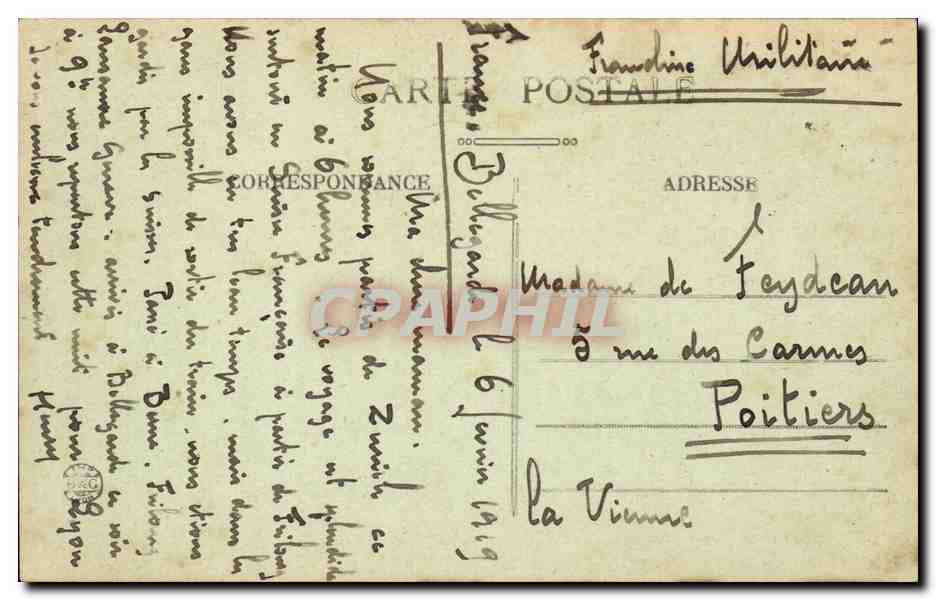 Franchise Militaire
CARTE POSTALE
CORRESPONDANCE
ADRESSE
Madame de Feydeau
5 rue des Carmes
Poitiers
la Vienne
France. Bellegarde le 6 Janvier 1919
Ma chere maman.
Nous sommes partis de Zurich ce
matin à 6 heures. Le voyage est splendide
surtout en Suisse Française à partir de Fribourg
Nous avons eu très beau temps. mais dans la
gare impossible de sortir du train. nous étions
gardés par les suisses. Passé à Berne. Fribourg
Lausanne Genève. arrivés à Bellegarde ce soir
à 9h nous repartons cette nuit pour Lyon
tendrement
Henry
CPAPHIL